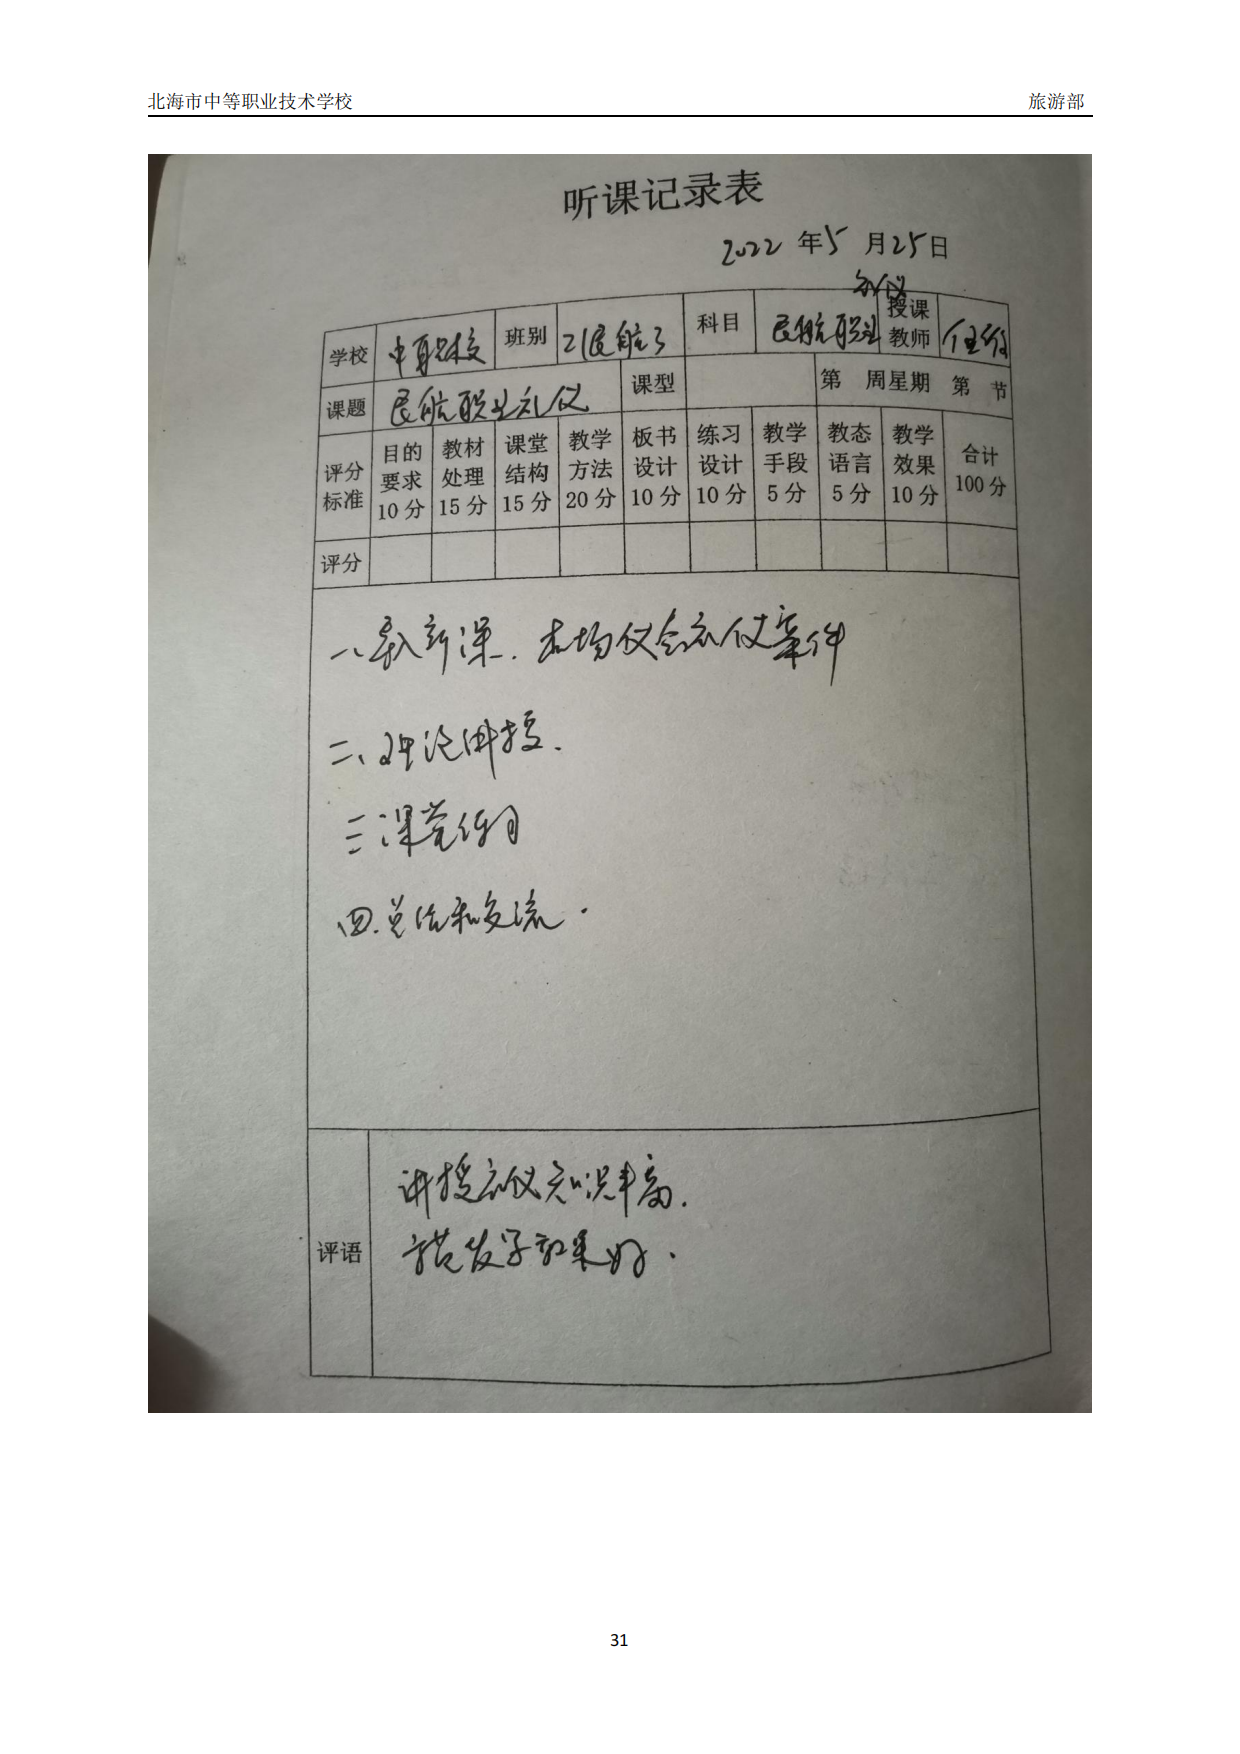 北海市中等职业技术学校 旅游部
听课记录表
2022 年 5 月 25 日
学校 中职校 班别 21民航3 科目 民航职业礼仪 授课教师
课题 民航职业礼仪 课型 第 周星期 第 节
评分标准 目的要求10分 教材处理15分 课堂结构15分 教学方法20分 板书设计10分 练习设计10分 教学手段5分 教态语言5分 教学效果10分 合计100分
评分
一、导入新课. 礼仪案件
二、理论讲授.
三 课堂练习
四.总结和交流.
评语 讲授礼仪知识丰富.
效果好.
31